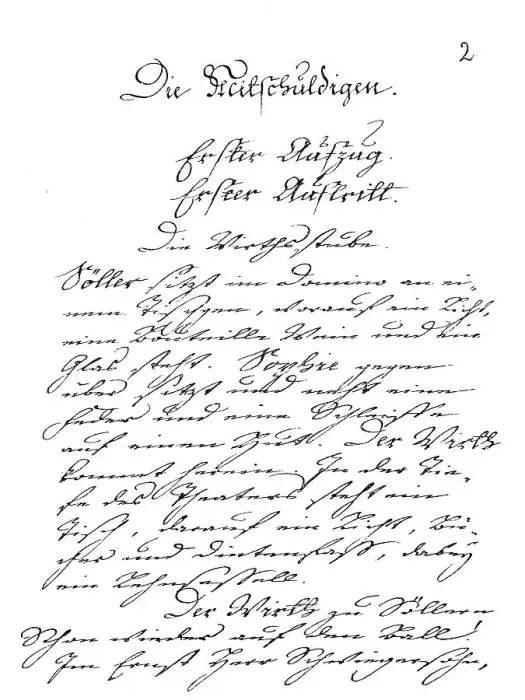 2
Die Mitschuldigen.
Erster Aufzug.
Erster Auftritt.
Die Wirthsstube.
Söller sitzt im Domino an ei,
nem Tischgen, worauf ein Licht,
eine Bouteille Wein und ein
Glas steht. Sophie gegen
über sitzt und näht eine
Feder und eine Schleiffe
auf einen Hut. Der Wirth
kommt herein. In der Tie,
fe des Theaters steht ein
Tisch, darauf ein Licht, Bü,
cher und Dintenfass, dabey
ein Lehnsessell.
Der Wirth zu Söllern
Schon wieder auf den Ball!
Im Ernst Herr Schwiegersohn,